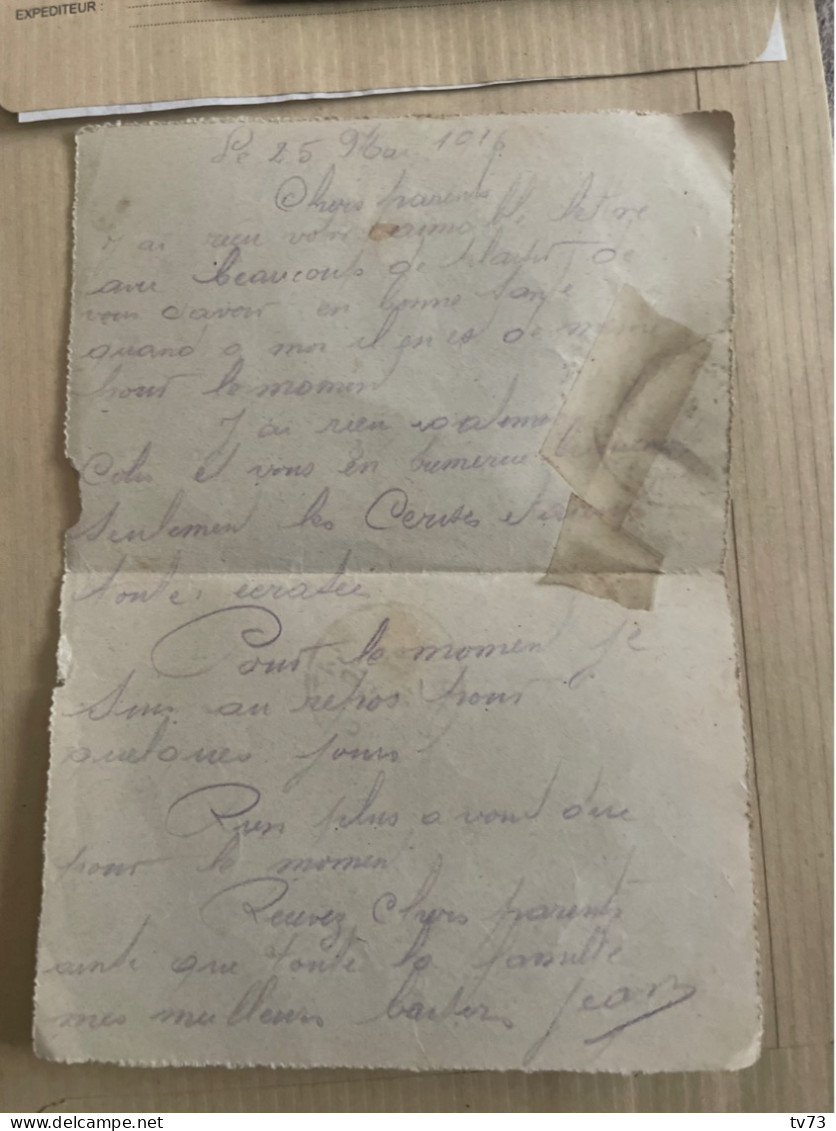 EXPEDITEUR :
Le 25 Mai 1916
Chers parents
J ai recu votre aimable lettre
avec beaucoup de plaisir de
vous savoir en bonne sante
quand a moi il en es de meme
pour le momen
J ai recu egalemen
Colis et vous en remercie
seulemen les Cerises
toute ecrasee
Pour le momen je
suis au repos pour
quelques jours
Rien plus a vous dire
pour le momen
Recevez Chers parents
ainsi que toute la famille
mes meilleurs baisers Jean
delcampe.net
tv73